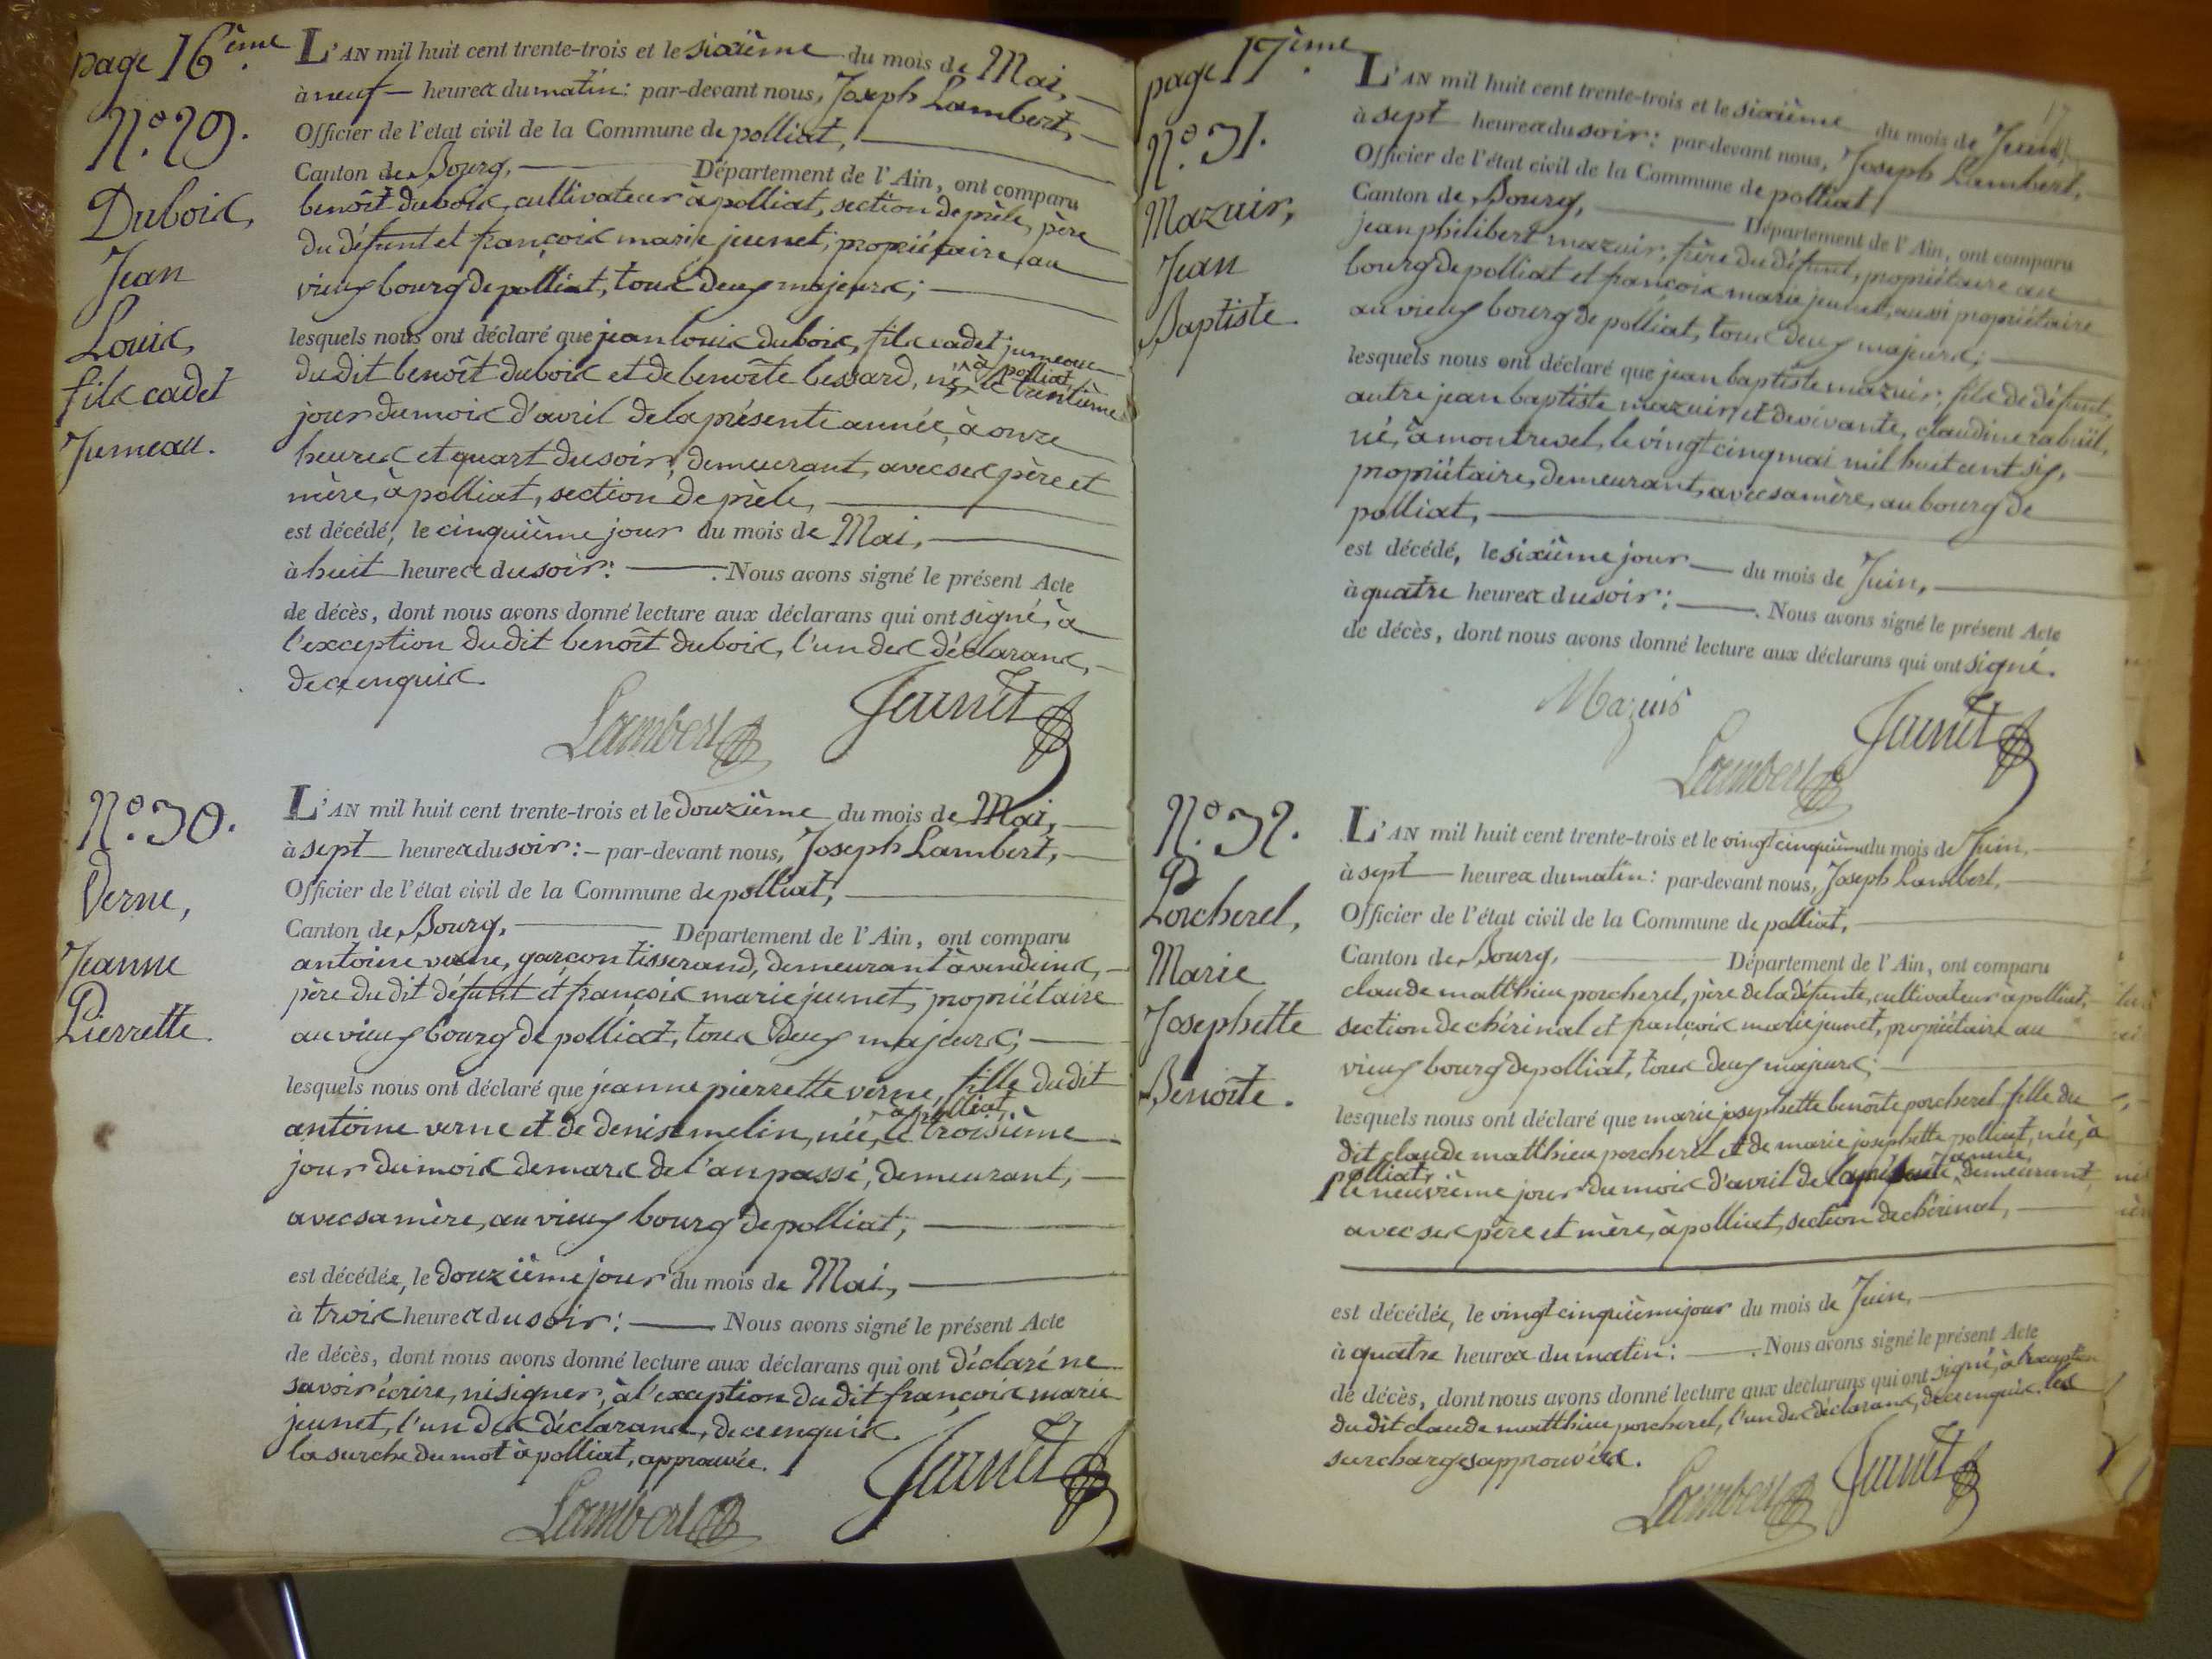 page 16ème.
L'AN mil huit cent trente-trois et le sixième du mois de Mai,
à neuf heures du matin: par-devant nous, Joseph Lambert,
Officier de l'état civil de la Commune de polliat,
Canton de Bourg, Département de l'Ain, ont comparu
benoît dubois, cultivateur à polliat, section de prèle, père
du défunt et françois marie jeunet, propriétaire au
vieux bourg de polliat, tous deux majeurs;
lesquels nous ont déclaré que jean louis dubois, fils cadet jumeau
du dit benoît dubois et de benoîte bessard, né, à polliat, le trentième
jour du mois d'avril de la présente année, à onze
heures et quart du soir, demeurant, avec ses père et
mère, à polliat, section de prèle,
est décédé, le cinquième jour du mois de Mai,
à huit heures du soir: Nous avons signé le présent Acte
de décès, dont nous avons donné lecture aux déclarans qui ont signé, à
l'exception du dit benoît dubois, l'un des déclarans,
de ce enquis.
Lambert Jeunet
N.° 29.
Dubois,
Jean
Louis,
fils cadet
Jumeau.
N.° 30.
Verne,
Jeanne
Pierrette.
L'AN mil huit cent trente-trois et le douzième du mois de Mai,
à sept heures du soir: par-devant nous, Joseph Lambert,
Officier de l'état civil de la Commune de polliat,
Canton de Bourg, Département de l'Ain, ont comparu
antoine verne, garçon tisserand, demeurant à vendeins,
père du dit défunt et françois marie jeunet, propriétaire
au vieux bourg de polliat, tous deux majeurs;
lesquels nous ont déclaré que jeanne pierrette verne, fille du dit
antoine verne et de denise melin, née, à polliat, le troisième
jour du mois de mars de l'an passé, demeurant,
avec sa mère, au vieux bourg de polliat,
est décédée, le douzième jour du mois de Mai,
à trois heures du soir: Nous avons signé le présent Acte
de décès, dont nous avons donné lecture aux déclarans qui ont déclaré ne
savoir écrire, ni signer, à l'exception du dit françois marie
jeunet, l'un des déclarans, de ce enquis.
la surche du mot à polliat, approuvée.
Lambert Jeunet
page 17ème.
17
N.° 31.
Mazuir,
Jean
Baptiste.
L'AN mil huit cent trente-trois et le sixième du mois de Juin,
à sept heures du soir: par-devant nous, Joseph Lambert,
Officier de l'état civil de la Commune de polliat,
Canton de Bourg, Département de l'Ain, ont comparu
jean philibert mazuir, frère du défunt, propriétaire au
bourg de polliat et françois marie jeunet, aussi propriétaire
au vieux bourg de polliat, tous deux majeurs;
lesquels nous ont déclaré que jean baptiste mazuir, fils de défunt
autre jean baptiste mazuir, et de vivante, claudine rabuël,
né, à montrevel, le vingt cinq mai mil huit cent six,
propriétaire, demeurant, avec sa mère, au bourg de
polliat,
est décédé, le sixième jour du mois de Juin,
à quatre heures du soir: Nous avons signé le présent Acte
de décès, dont nous avons donné lecture aux déclarans qui ont signé.
Mazuir
Lambert Jeunet
N.° 32.
Porcherel,
Marie
Josephette
Benoîte.
L'AN mil huit cent trente-trois et le vingt cinquième du mois de Juin,
à sept heures du matin: par-devant nous, Joseph Lambert,
Officier de l'état civil de la Commune de polliat,
Canton de Bourg, Département de l'Ain, ont comparu
claude matthieu porcherel, père de la défunte, cultivateur à polliat,
section de chérinal et françois marie jeunet, propriétaire au
vieux bourg de polliat, tous deux majeurs;
lesquels nous ont déclaré que marie josephette benoîte porcherel fille du
dit claude matthieu porcherel et de marie josephette polliat, née, à
polliat, le neuvième jour du mois d'avril de la présente année, demeurant,
avec ses père et mère, à polliat, section de chérinal,
est décédée, le vingt cinquième jour du mois de Juin,
à quatre heures du matin: Nous avons signé le présent Acte
de décès, dont nous avons donné lecture aux déclarans qui ont signé, à l'exception
du dit claude matthieu porcherel, l'un des déclarans, de ce enquis. les
surcharges approuvées.
Lambert Jeunet